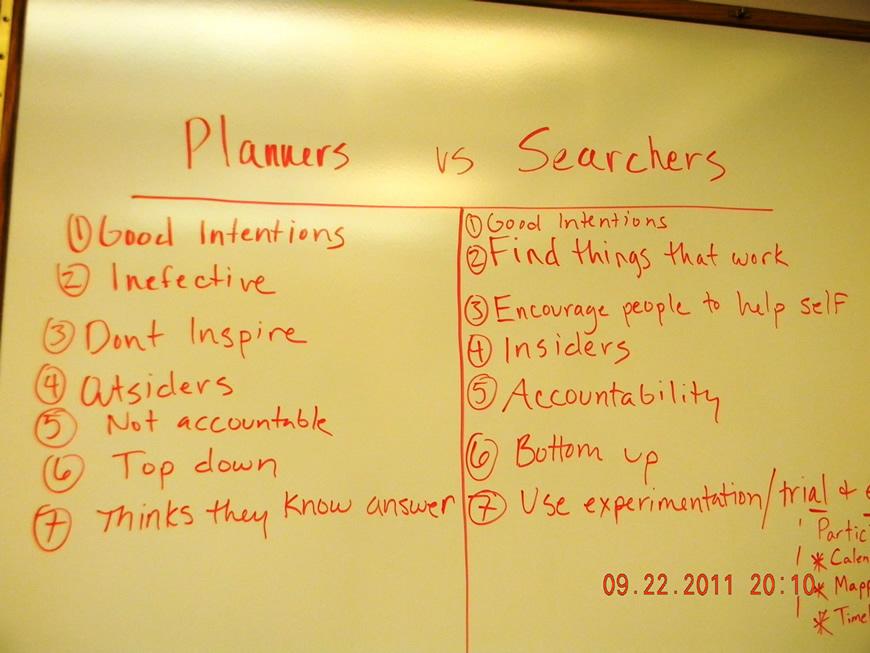 Planners vs Searchers
① Good Intentions
② Inefective
③ Dont Inspire
④ Outsiders
⑤ Not accountable
⑥ Top down
⑦ Thinks they know answer
① Good Intentions
② Find things that work
③ Encourage people to help self
④ Insiders
⑤ Accountability
⑥ Bottom up
⑦ Use experimentation/trial +
Partic
* Calen
* Mapp
* Timel
09.22.2011 20:10